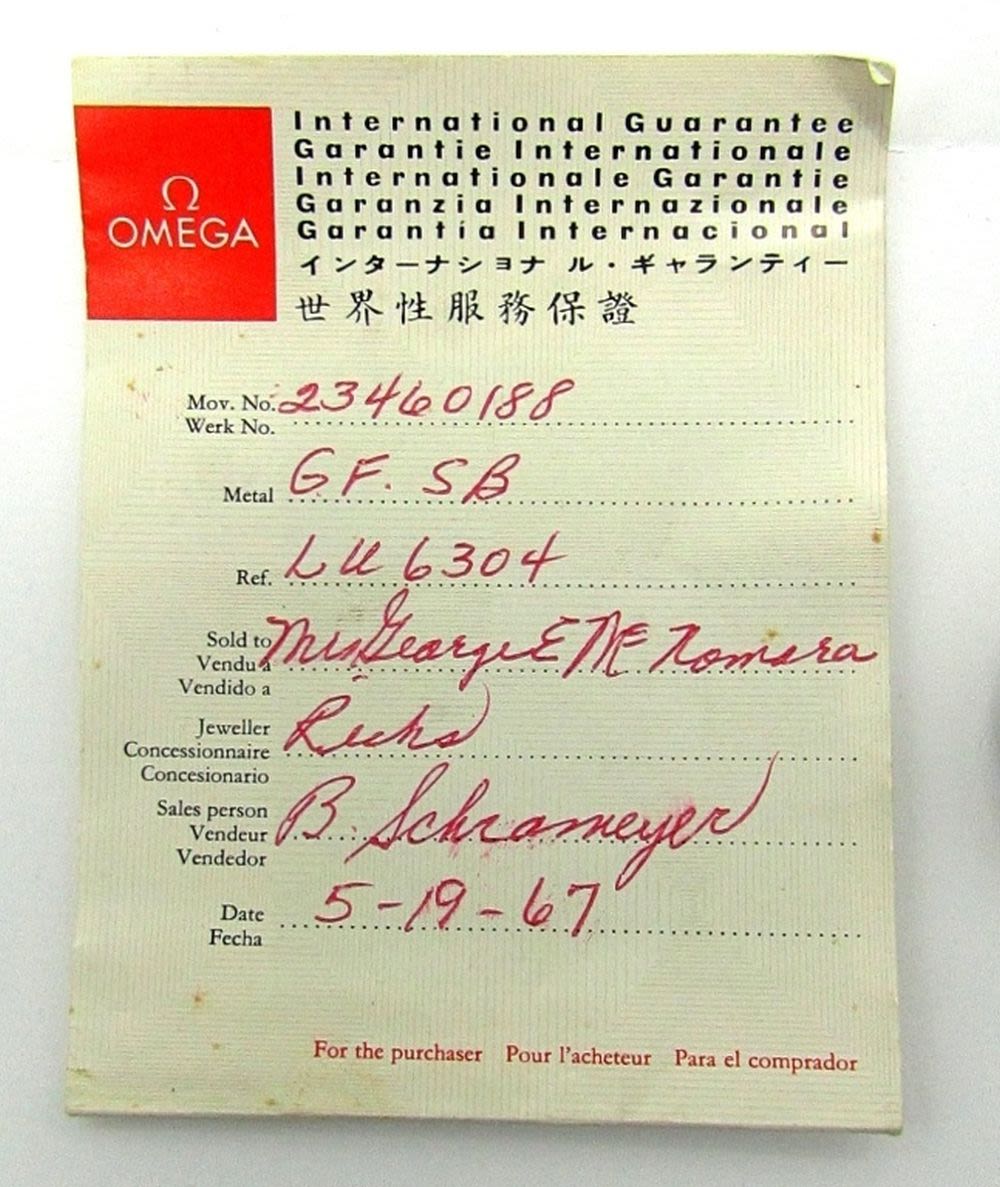 Ω
OMEGA
International Guarantee
Garantie Internationale
Internationale Garantie
Garanzia Internazionale
Garantía Internacional
インターナショナル・ギャランティー
世界性服務保證
Mov. No. 23460188
Werk No.
Metal G.F. SB
Ref. LU 6304
Sold to Mrs George E Mc Nomara
Vendu à
Vendido a
Jeweller
Concessionnaire
Concesionario
Sales person B. Schrameyer
Vendeur
Vendedor
Date 5-19-67
Fecha
For the purchaser Pour l'acheteur Para el comprador